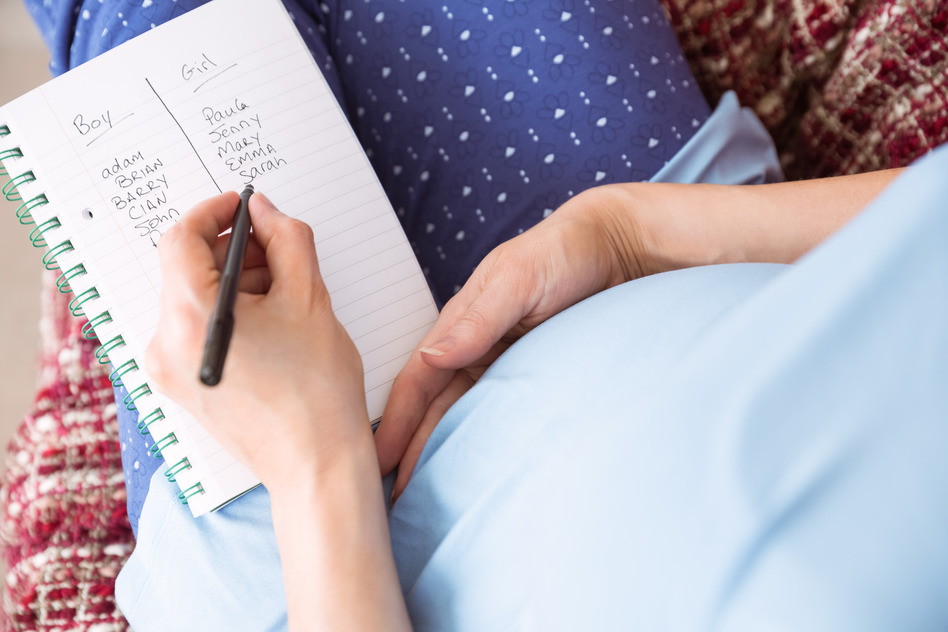 Boy
adam
BRIAN
BARRY
CIAN
John
Girl
Paula
Jenny
MARY
EMMA
Sarah